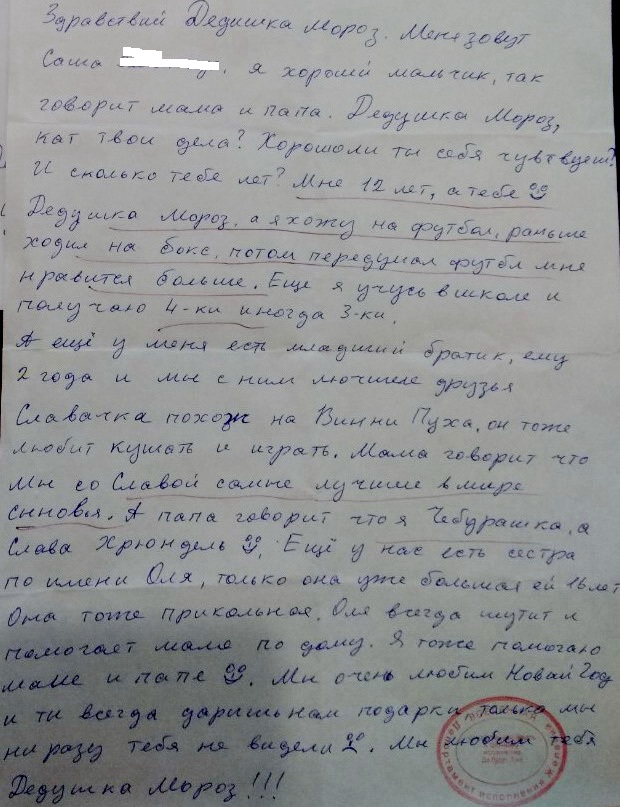 Здравствий Дедишка Мороз. Меня зовут
Саша . я хороший мальчик, так
говорит мама и папа. Дедушка Мороз,
кат твои дела? Хорошоли ты себя чувтвуеш?
И сколько тебе лет? Мне 12 лет, а тебе
Дедушка Мороз, а я хожу на футбол, раньше
ходил на бокс, потом передумал футбл мне
нравится больше. Еще я учусь в школе и
получаю 4-ки иногда 3-ки.
А ещё у меня есть младший братик, ему
2 года и мы с ним лючшие друзья
Славачка похож на Винни Пуха, он тоже
любит кушать и играть. Мама говорит что
мы со Славой самые лучшие в мире
сыновья. А папа говорит что я Чебурашка, а
Слава Хрюндель. Ещё у нас есть сестра
по имени Оля, только она уже большая ей 16 лет
Она тоже прикольная. Оля всегда шутит и
помогает маме по дому. Я тоже помогаю
маме и папе. Мы очень любим Новий Год
и ти всегда даришь нам подарки только мы
ни разу тебя не видели. Мы любим тебя
Дедушка Мороз!!!